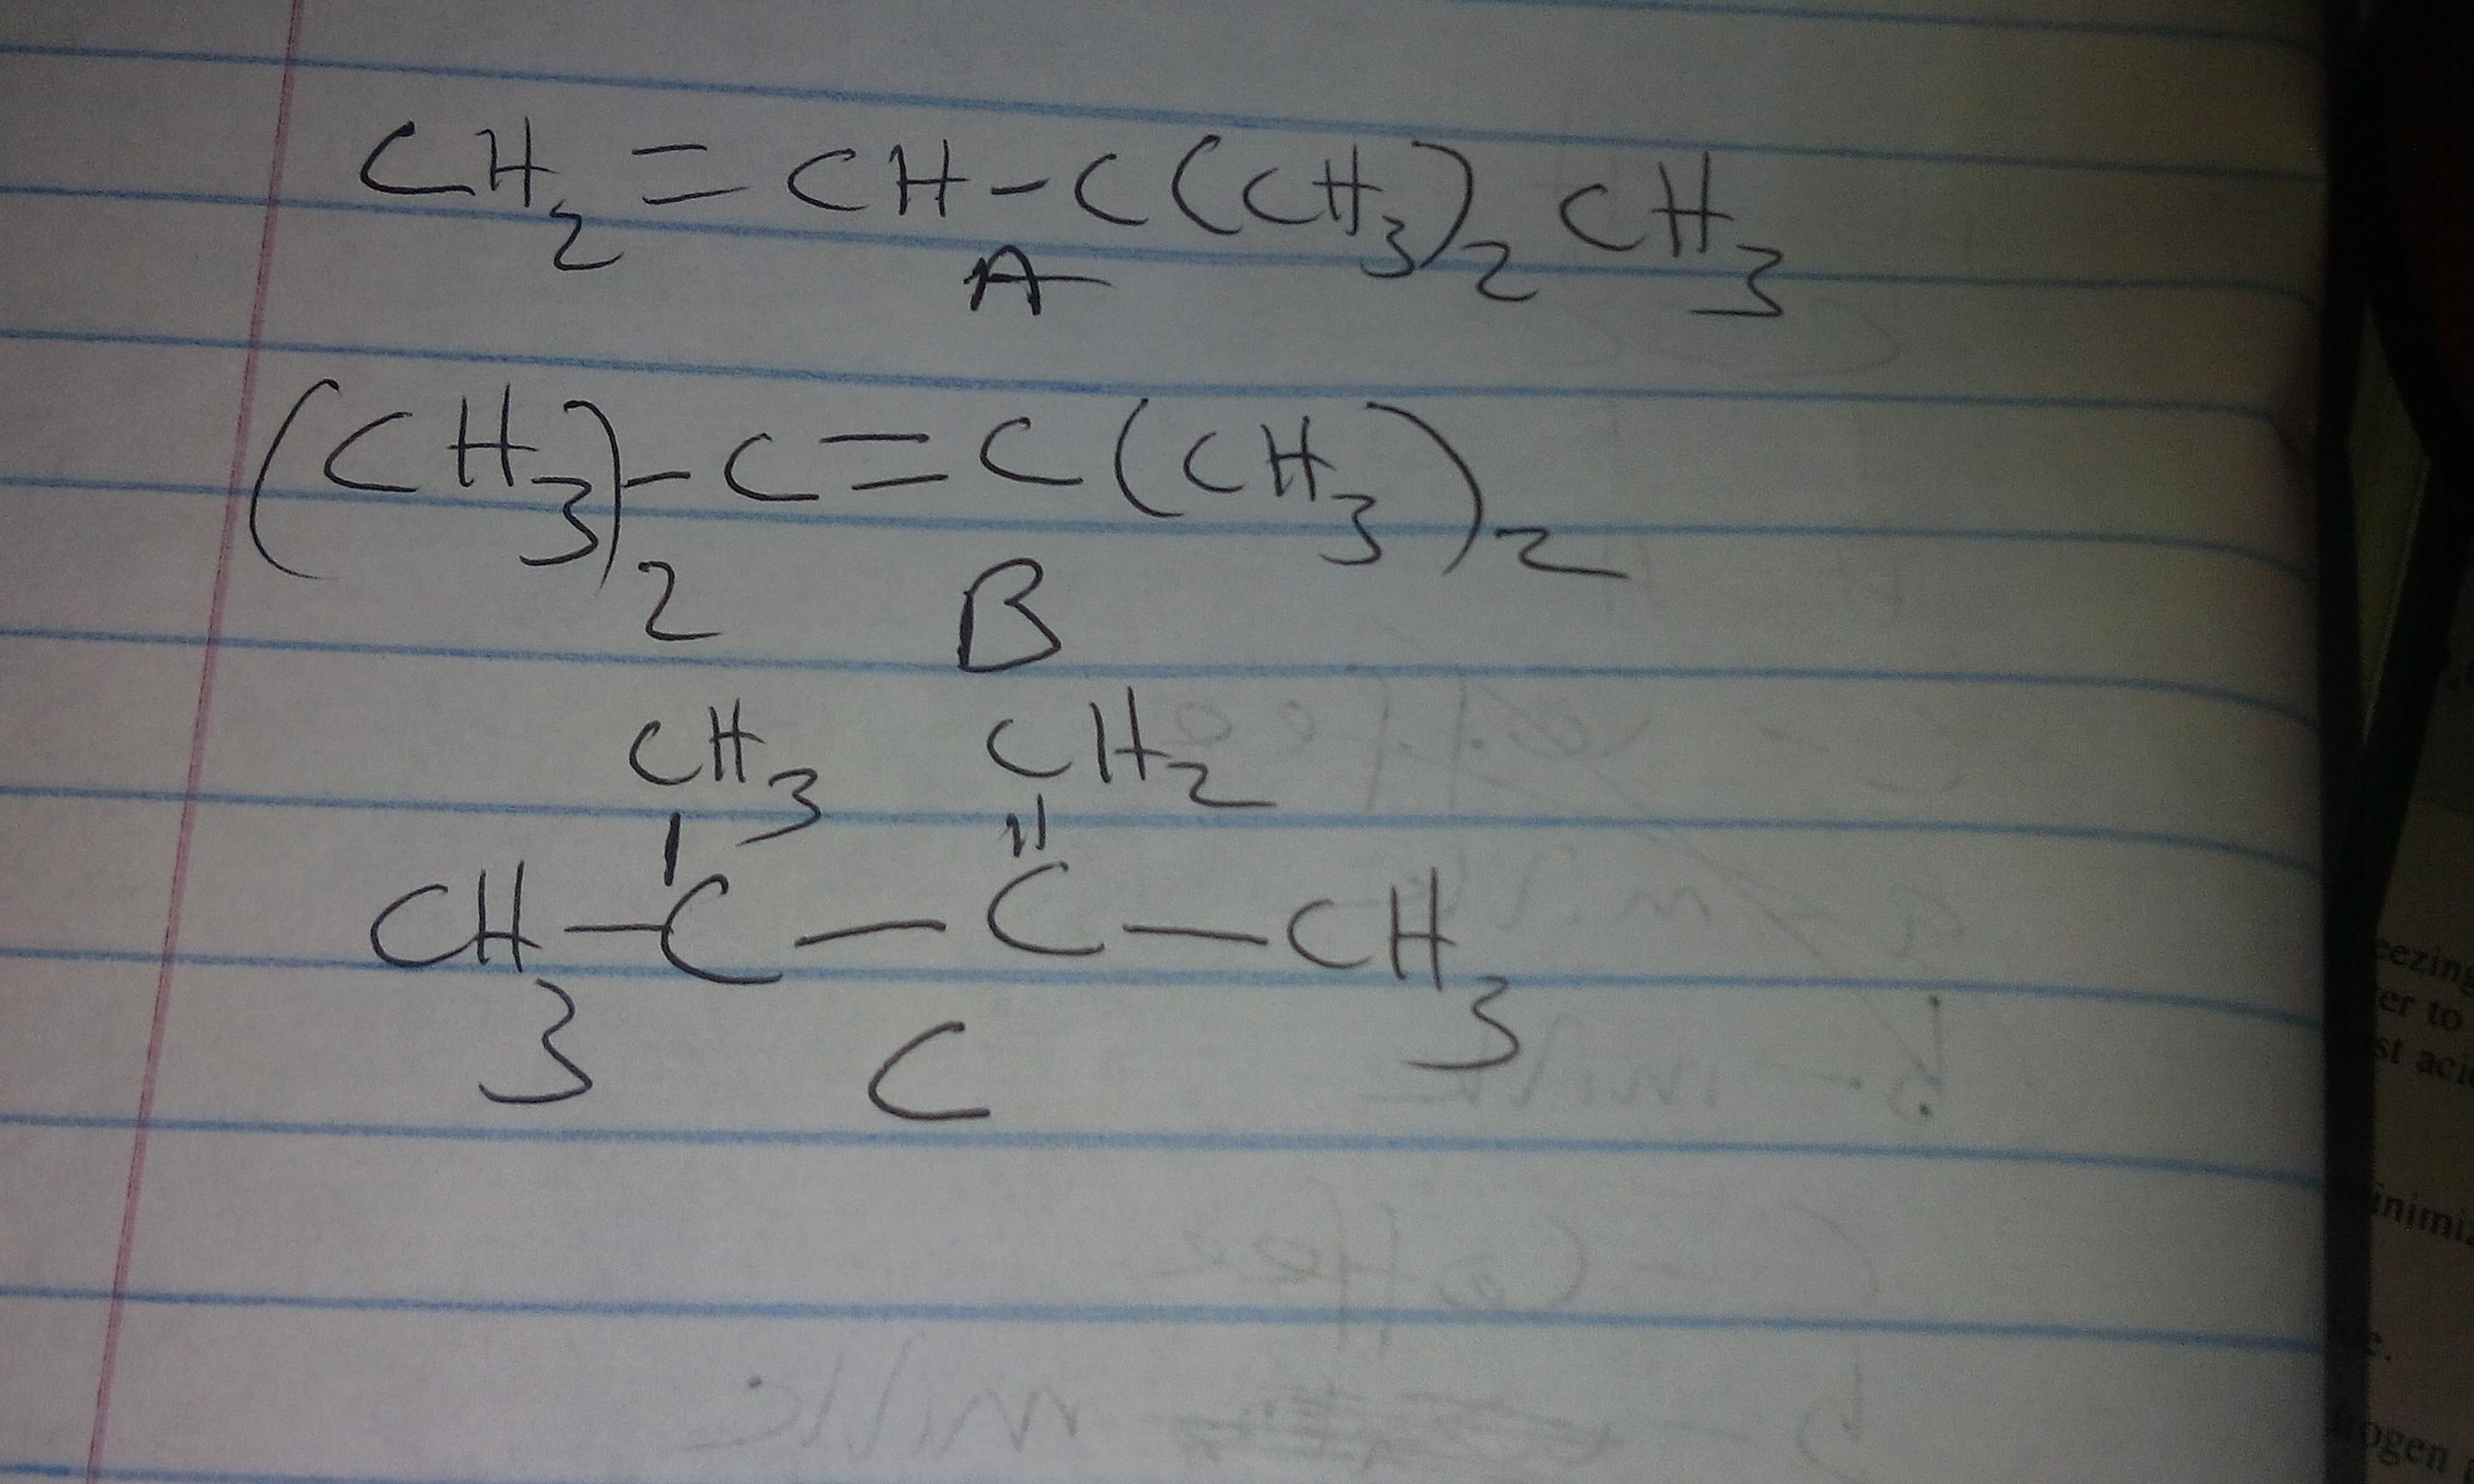 CH₂ = CH - C(CH₃)₂ CH₃
A
(CH₃)₂ - C = C(CH₃)₂
B
CH₃ CH₂
| ||
CH₃ — C — C — CH₃
C
eezing
er to
st aci
inimiz
e.
ogen